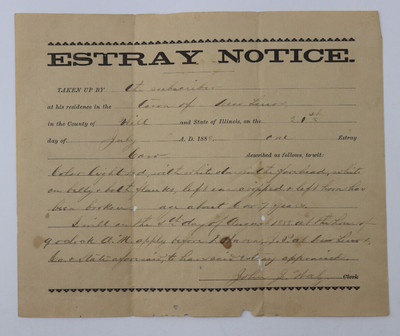 ESTRAY NOTICE.
TAKEN UP BY the subscriber
at his residence in the Town of New Lenox
in the County of Will and State of Illinois, on the 21st
day of July A. D. 188 one Estray
Cow described as follows, to-wit:
Color light red, with white star in the forehead, white
on belly & both flanks, left ear cropped & left horn has
been broken age about 6 or 7 years.
I will on the day of August at the hour of
9 o'clock A.M. apply before J.P. at New Lenox
Co. & State aforesaid, to have said cow appraised
John J.